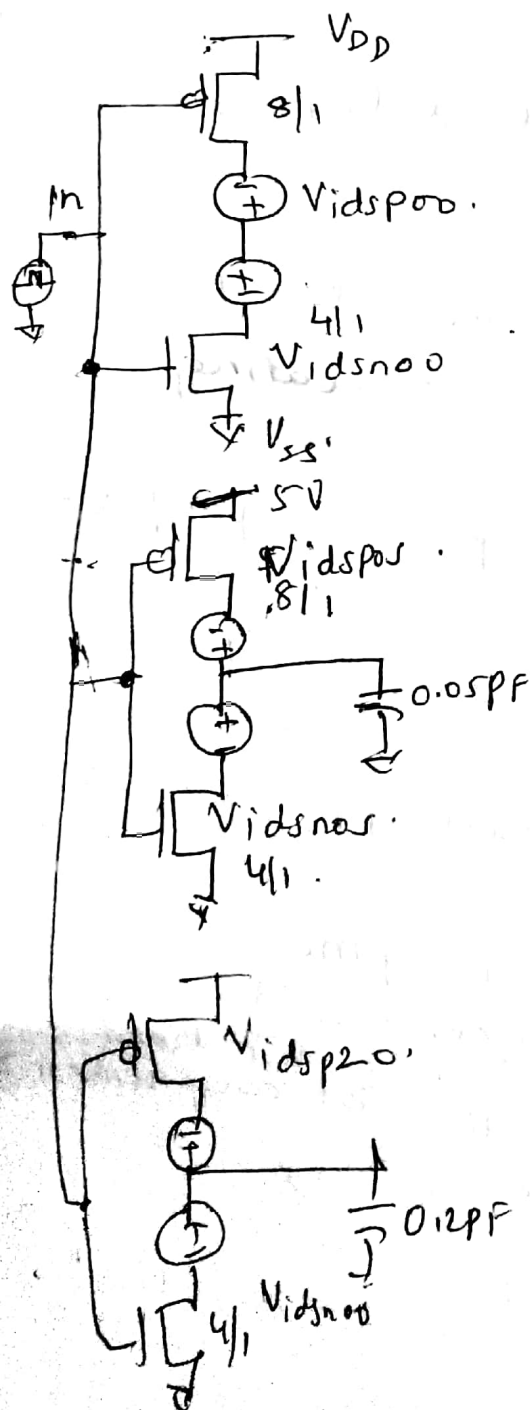 VDD
8/1
in
Vidsp00.
4/1
Vidsn00
Vss.
5V
Vidsp05.
8/1
0.05PF
Vidsn05.
4/1.
Vidsp20.
0.12PF
Vidsn00
4/1